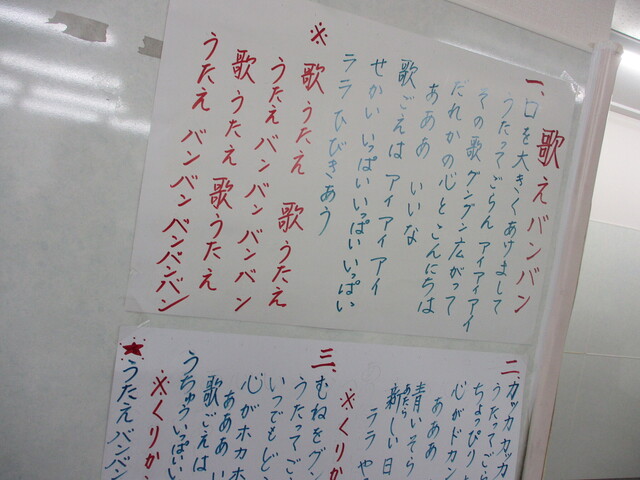 歌えバンバン
一、口を大きくあけまして
うたってごらん アイアイアイ
その歌グングン広がって
だれかの心とこんにちは
あああ いいな
歌ごえは アイ アイ アイ
せかい いっぱい いっぱい いっぱい
ララ ひびきあう
※
歌 うたえ 歌 うたえ
うたえ バンバン バンバン
歌 うたえ 歌 うたえ
うたえ バン バン バンバンバン
二、カッカカッカ
うたってごら
ちょっぴり
心がドカン
あああ
青いそら
新しい日
あたら
ララ や
※くりか
三、むねをグン
うたってご
いつでもど
心がホカホ
あああ い
歌ごえは
うちゅういっぱい
※くりか
★うたえバンバン